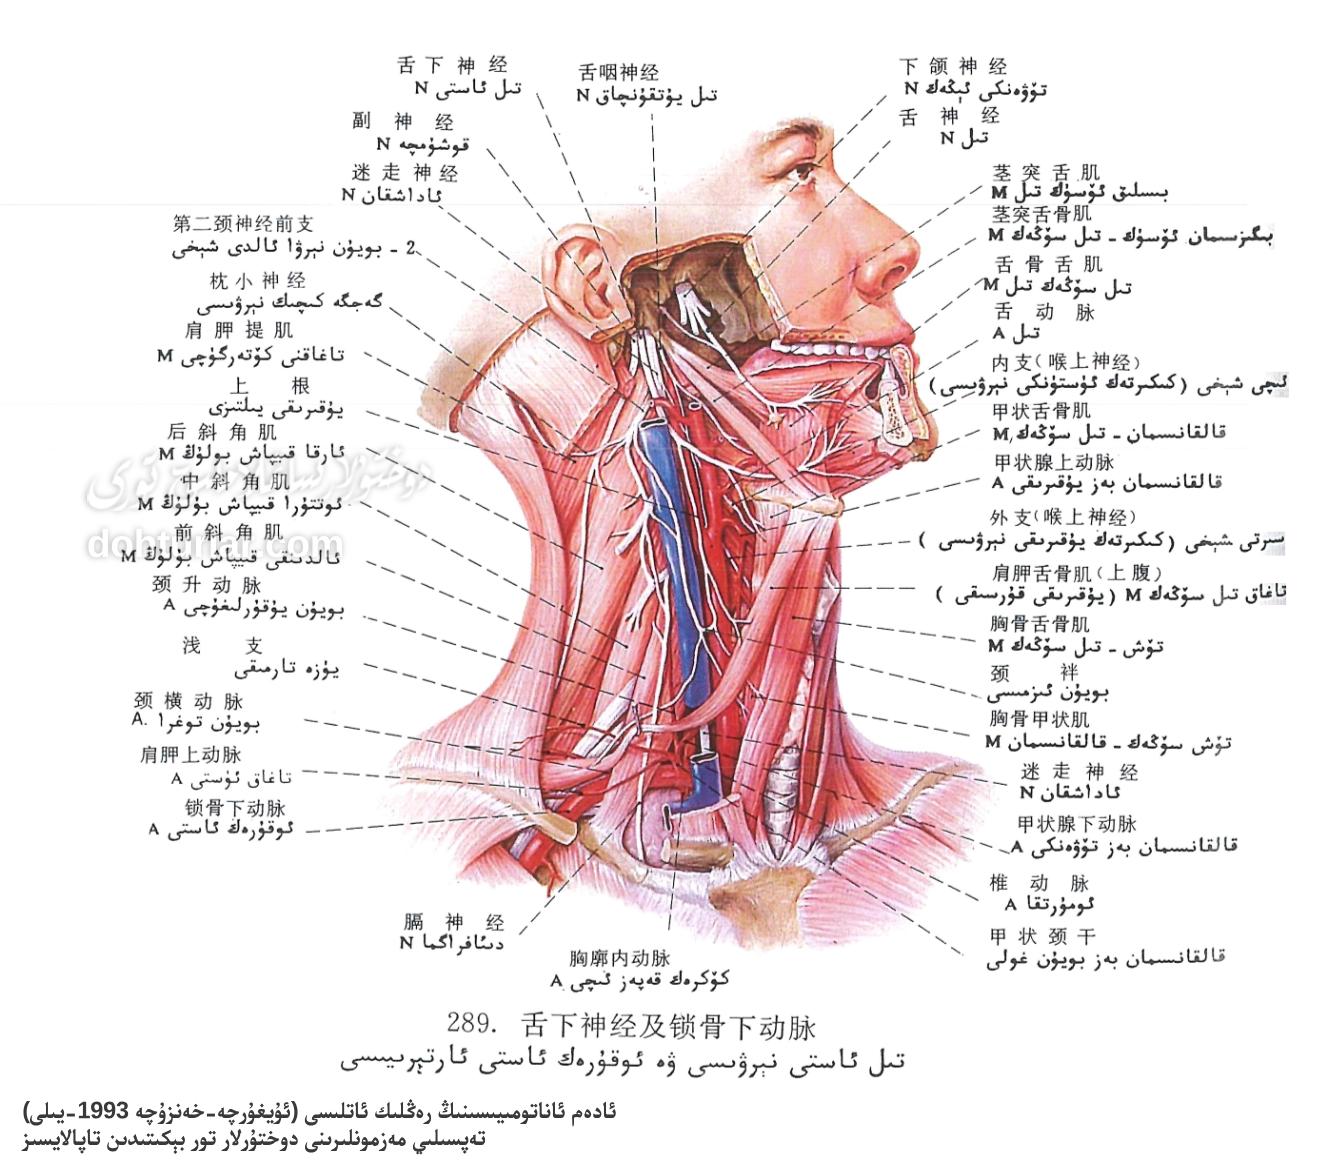 舌下神经
تىل ئاستى N
舌咽神经
تىل يۇتقۇنچاق N
下颌神经
تۆۋەنكى ئېڭەك N
舌神经
تىل N
副神经
قوشۇمچە N
迷走神经
ئاداشقان N
第二颈神经前支
2 - بويۇن نېرۋا ئالدى شېخى
枕小神经
گەجگە كىچىك نېرۋىسى
肩胛提肌
تاغاقنى كۆتەرگۈچى M
上根
يۇقىرىقى يىلتىزى
后斜角肌
ئارقا قىيپاش بولۇڭ M
中斜角肌
ئوتتۇرا قىيپاش بۇلۇڭ M
前斜角肌
ئالدىنقى قىيپاش بۇلۇڭ M
颈升动脉
بويۇن يۇقۇرلىغۇچى A
浅支
يۈزە تارمىقى
颈横动脉
بويۇن توغرا A.
肩胛上动脉
تاغاق ئۈستى A
锁骨下动脉
ئوقۇرەك ئاستى A
茎突舌肌
M تىل ئۆسۈك
茎突舌骨肌
بىگىزسىمان ئۆسۈك - تىل سۆڭەك M
舌骨舌肌
تىل سۆڭەك تىل M
舌动脉
تىل A
内支(喉上神经)
ئىچى شېخى (كىكىرتەك ئۈستۈنكى نېرۋىسى)
甲状舌骨肌
قالقانسىمان - تىل سۆڭەك M
甲状腺上动脉
قالقانسىمان بەز يۇقىرىقى A
外支(喉上神经)
سىرتى شېخى (كىكىرتەك يۇقىرىقى نېرۋىسى)
肩胛舌骨肌(上腹)
تاغاق تىل سۆڭەك M (يۇقىرىقى قۇرسىقى)
胸骨舌骨肌
تۆش - تىل سۆڭەك M
颈袢
بويۇن ئىزمىسى
胸骨甲状肌
تۆش سۆڭەك - قالقانسىمان M
迷走神经
ئاداشقان N
甲状腺下动脉
قالقانسىمان بەز تۆۋەنكى A
椎动脉
ئومۇرتقا A
甲状颈干
قالقانسىمان بەز بويۇن غولى
膈神经
دىئافراگما N
胸廓内动脉
كۆكرەك قەپەز ئىچى A
dohturlar.com
289. 舌下神经及锁骨下动脉
تىل ئاستى نېرۋىسى ۋە ئوقۇرەك ئاستى ئارتېرىيىسى
ئادەم ئاناتومىيىسىنىڭ رەڭلىك ئاتلىسى (ئۇيغۇرچە-خەنزۇچە 1993-يىلى)
تەپسىلىي مەزمونلىرىنى دوختۇرلار تور بېكىتىدىن تاپالايسىز